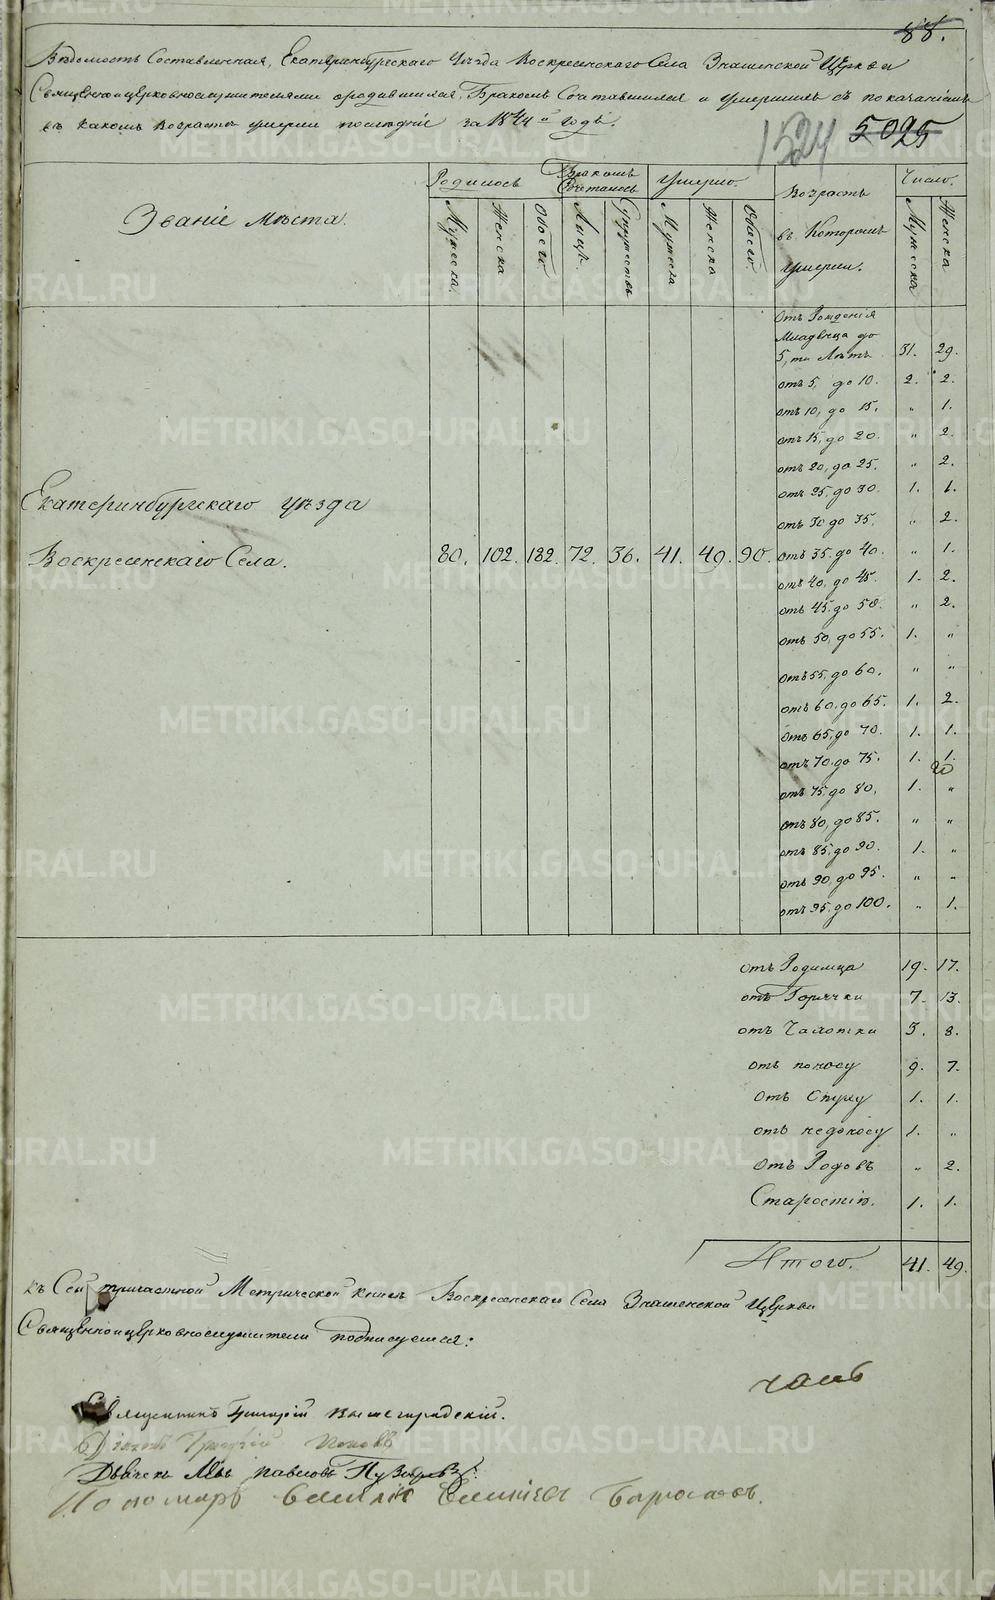 88.
Вѣдомость Составленная, Екатеринбургскаго Уѣзда Воскресенскаго Села Знаменской Церкви
Священноицерковнослужителями о родившихся, Бракомъ Сочетавшихся и умершихъ съ показаніемъ
въ какомъ возрастѣ умерли послѣдніе за 1844й годъ.
1524 5025
Званіе мѣста.
Родилось
Мужеска.
Женска
Обоего
Бракомъ Сочеталось
Лицъ.
Супружествъ
Умерло.
Мужеска
Женска
Обоего.
Возрастъ
въ Которомъ
умерли.
Число.
Мужеска
Женска
Отъ Рожденія
Младенца до
5, ти Лѣтъ 31. 29.
отъ 5, до 10. 2. 2.
отъ 10, до 15. „ 1.
отъ 15, до 20. „ 2.
отъ 20, до 25. „ 2.
отъ 25, до 30. 1. 1.
отъ 30 до 35. „ 2.
Екатеринбургскаго уѣзда
Воскресенскаго Села. 80. 102. 182. 72. 36. 41. 49. 90. отъ 35. до 40. „ 1.
отъ 40, до 45. 1. 2.
отъ 45. до 50. „ 2.
отъ 50, до 55. 1. „
отъ 55. до 60. „ „
отъ 60. до 65. 1. 2.
отъ 65. до 70. 1. 1.
отъ 70. до 75. 1. 1.
20
отъ 75. до 80. 1. „
отъ 80, до 85. „ „
отъ 85. до 90. 1. „
отъ 90. до 95. „ „
отъ 95. до 100. „ 1.
отъ Родимца 19. 17.
отъ Горячки 7. 13.
отъ Чахотки 3. 8.
отъ поносу 9. 7.
отъ Опуху 1. 1.
отъ недоносу 1. „
отъ Родовъ „ 2.
Старостію. 1. 1.
Итого. 41. 49.
Къ Сей тричастной Метрической книгѣ Воскресенскаго Села Знаменской Церкви
Священноицерковнослужители подписуемся:
Священникъ Григорій Вышегородскій.
Діаконъ Поповъ
Дьячекъ Левъ Павловъ
Пономарь
METRIKI.GASO-URAL.RU